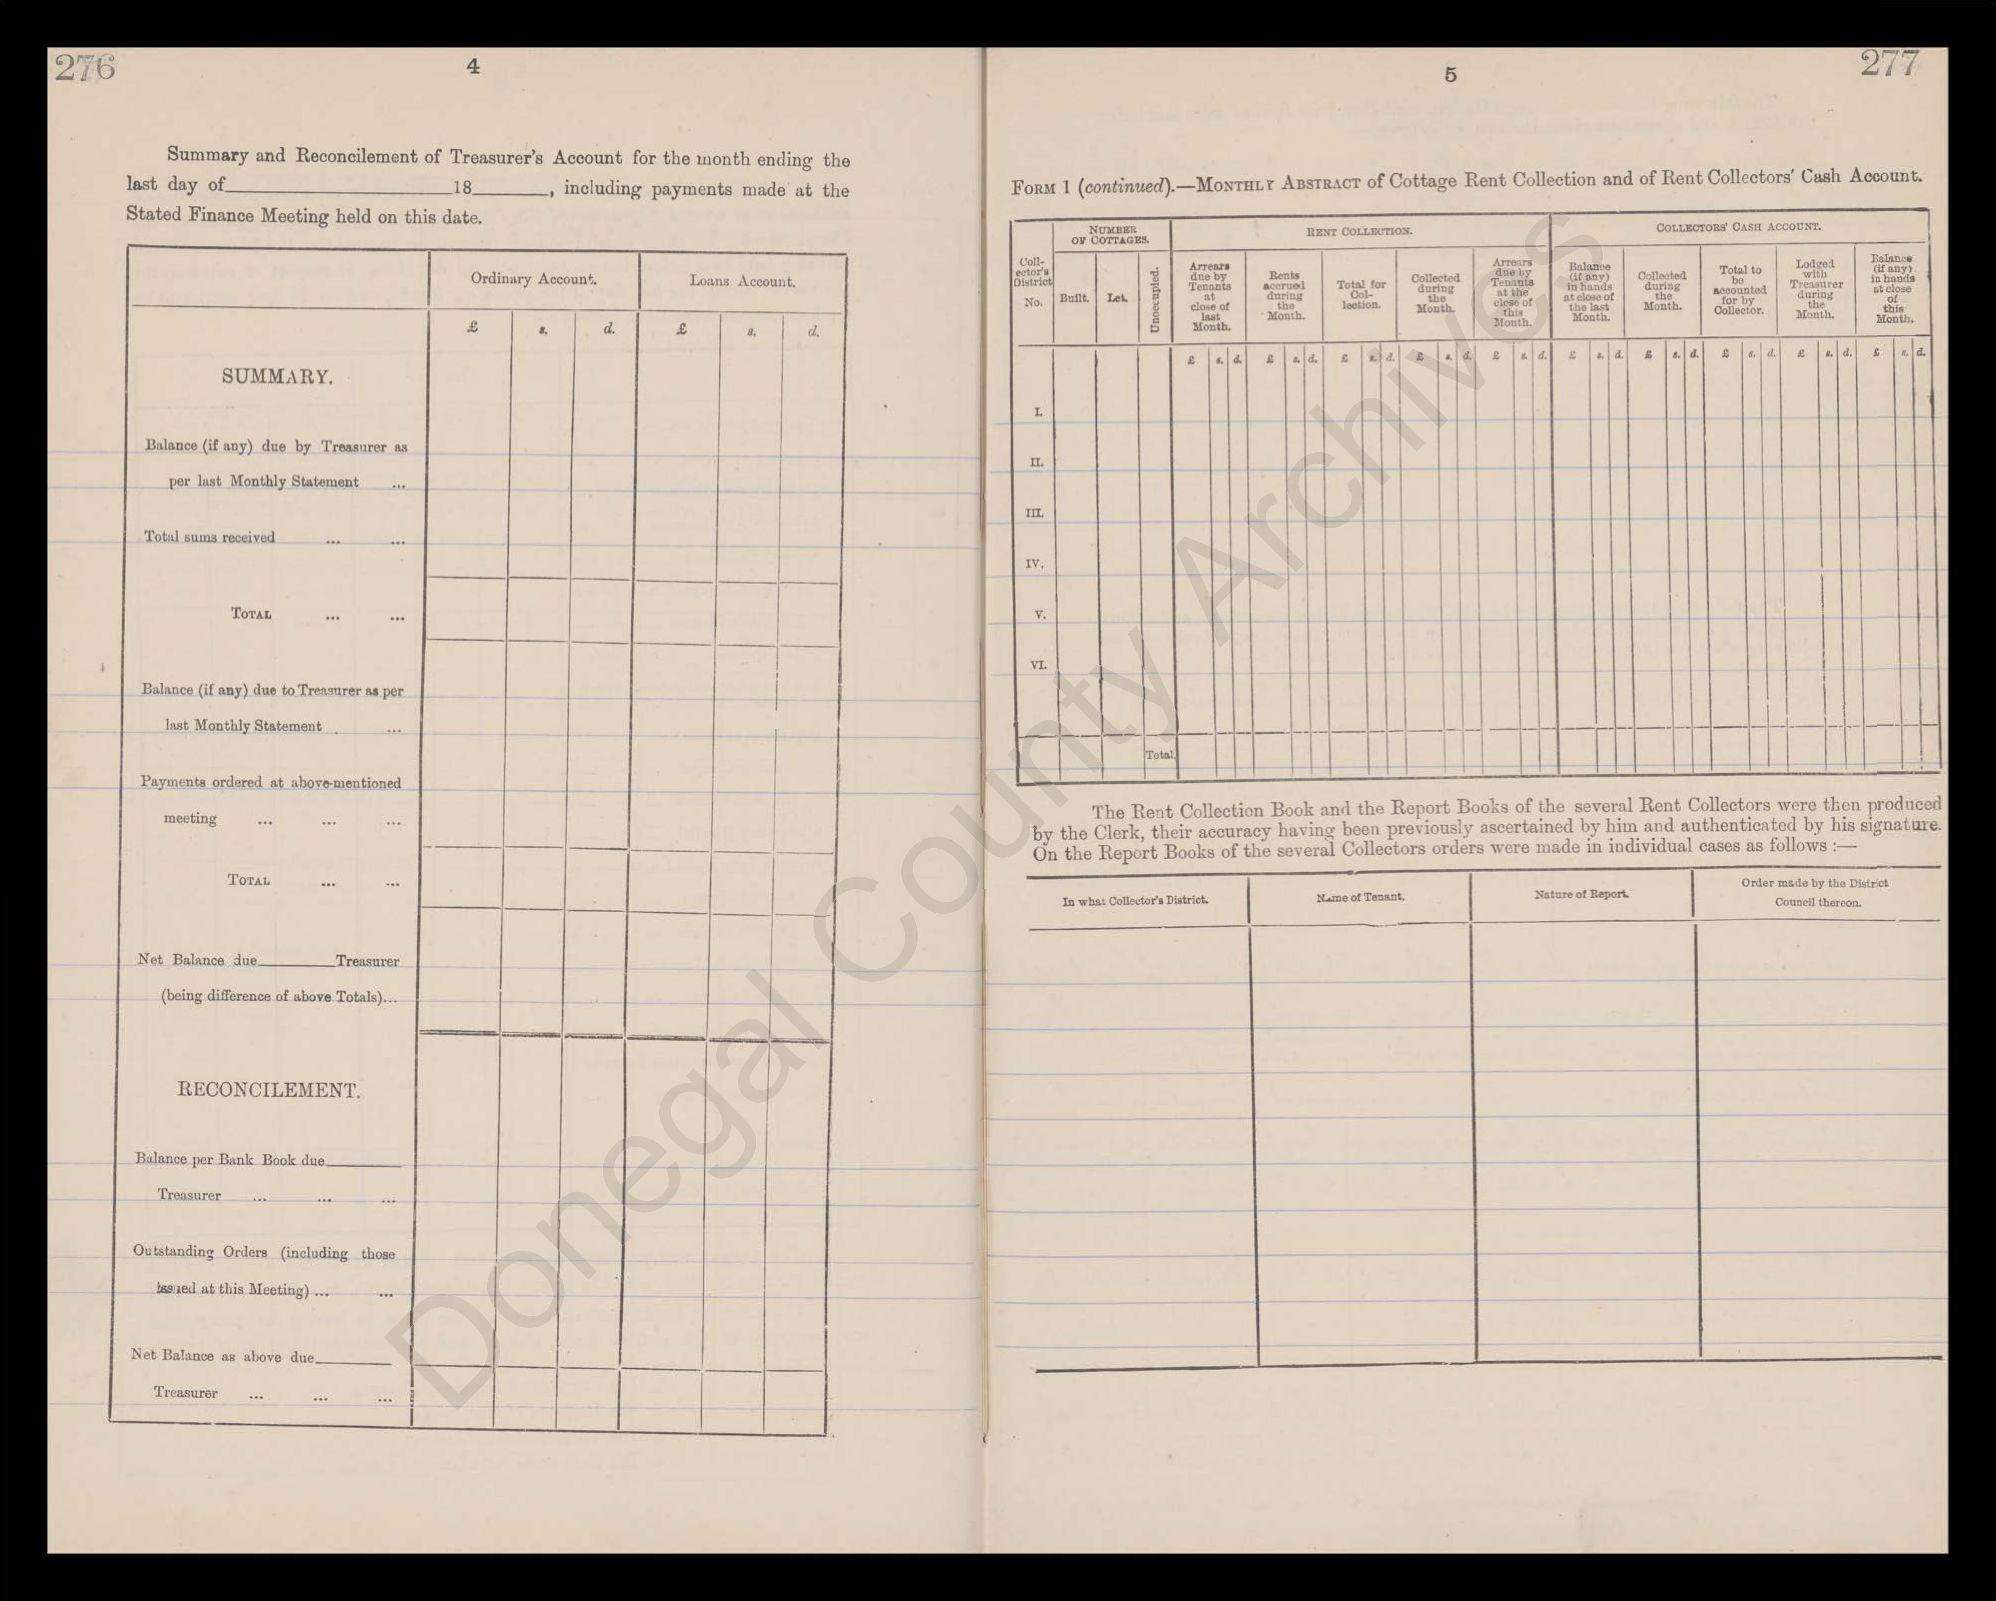 276
4
Summary and Reconcilement of Treasurer's Account for the month ending the
last day of 18 , including payments made at the
Stated Finance Meeting held on this date.
Ordinary Account. Loans Account.
£ s. d. £ s. d.
SUMMARY.
Balance (if any) due by Treasurer as
per last Monthly Statement ...
Total sums received ... ...
TOTAL ... ...
Balance (if any) due to Treasurer as per
last Monthly Statement . ...
Payments ordered at above-mentioned
meeting ... ... ...
TOTAL ... ...
Net Balance due Treasurer
(being difference of above Totals)...
RECONCILEMENT.
Balance per Bank Book due
Treasurer ... ... ...
Outstanding Orders (including those
issued at this Meeting) ... ...
Net Balance as above due
Treasurer ... ... ...
277
5
FORM 1 (continued).—MONTHLY ABSTRACT of Cottage Rent Collection and of Rent Collectors' Cash Account.
Coll-
ector's
District
No.
NUMBER
OF COTTAGES.
Built.
Let.
Unoccupied.
RENT COLLECTION.
Arrears
due by
Tenants
at
close of
last
Month.
Rents
accrued
during
the
Month.
Total for
Col-
lection.
Collected
during
the
Month.
Arrears
due by
Tenants
at the
close of
this
Month.
COLLECTORS' CASH ACCOUNT.
Balance
(if any)
in hands
at close of
the last
Month.
Collected
during
the
Month.
Total to
be
accounted
for by
Collector.
Lodged
with
Treasurer
during
the
Month.
Balance
(if any)
in hands
at close
of
this
Month.
£ s. d. £ s. d. £ s. d. £ s. d. £ s. d. £ s. d. £ s. d. £ s. d. £ s. d. £ s. d.
I.
II.
III.
IV.
V.
VI.
Total
The Rent Collection Book and the Report Books of the several Rent Collectors were then produced
by the Clerk, their accuracy having been previously ascertained by him and authenticated by his signature.
On the Report Books of the several Collectors orders were made in individual cases as follows :—
In what Collector's District.
Name of Tenant.
Nature of Report.
Order made by the District
Council thereon.
Donegal County Archives